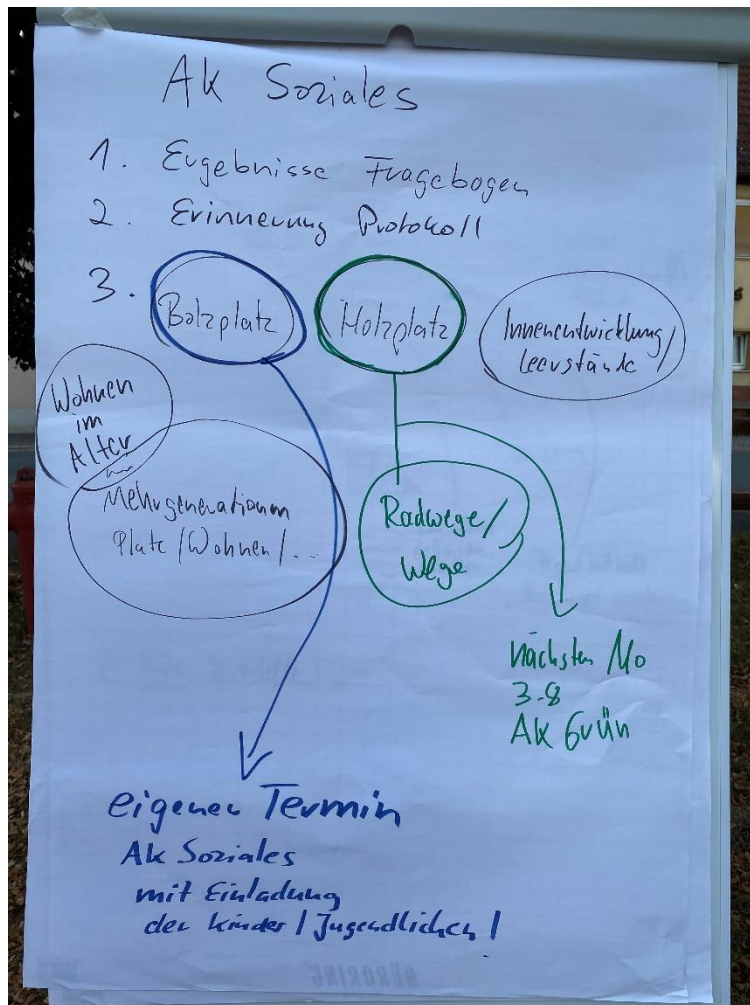 AK Soziales
1. Ergebnisse Fragebogen
2. Erinnerung Protokoll
3.
Bolzplatz
Holzplatz
Innenentwicklung/
Leerstände
Wohnen
im
Alter
Mehrgenerationen
Platz/Wohnen/...
Radwege/
Wege
nächsten Mo
3.8
AK Grün
eigener Termin
AK Soziales
mit Einladung
der Kinder/Jugendlichen/
BÜRORING